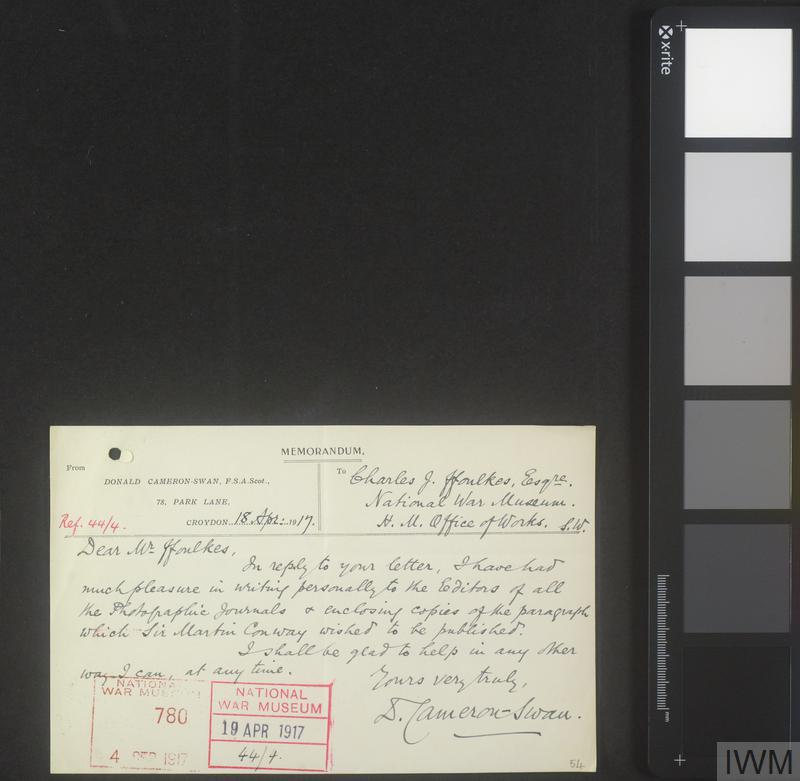 MEMORANDUM.
From
DONALD CAMERON-SWAN, F.S.A.Scot.,
78, PARK LANE,
CROYDON, 18 Apr: 1917.
Ref. 44/4.
To Charles J. ffoulkes, Esqre.
National War Museum.
H. M. Office of Works. S.W.
Dear Mr ffoulkes,
In reply to your letter, I have had
much pleasure in writing personally to the Editors of all
the Photographic Journals & enclosing copies of the paragraph
which Sir Martin Conway wished to be published.
I shall be glad to help in any other
way I can, at any time.
Yours very truly,
D. Cameron-Swan.
NATIONAL
WAR MUSEUM
780
4 SEP 1917
NATIONAL
WAR MUSEUM
19 APR 1917
44/4.
54
x·rite
mm
IWM